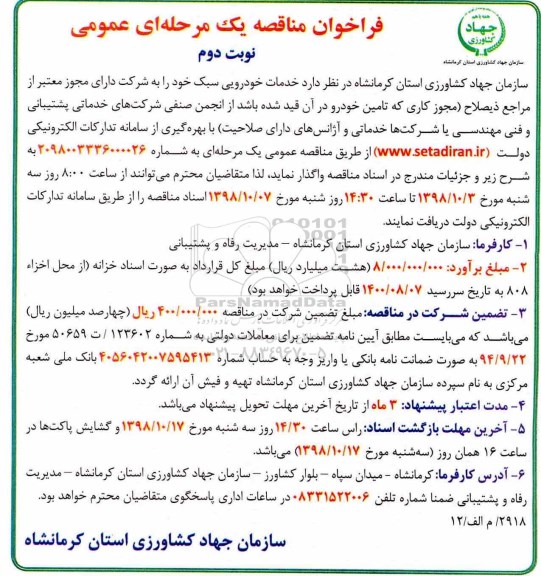 فراخوان مناقصه یک مرحله‌ای عمومی
نوبت دوم
همه با هم
جهاد
کشاورزی
سازمان جهاد کشاورزی استان کرمانشاه
سازمان جهاد کشاورزی استان کرمانشاه در نظر دارد خدمات خودرویی سبک خود را به شرکت دارای مجوز معتبر از
مراجع ذیصلاح (مجوز کاری که تامین خودرو در آن قید شده باشد از انجمن صنفی شرکت‌های خدماتی پشتیبانی
و فنی مهندسی یا شرکت‌ها خدماتی و آژانس‌های دارای صلاحیت) با بهره‌گیری از سامانه تدارکات الکترونیکی
دولت (www.setadiran.ir) از طریق مناقصه عمومی یک مرحله‌ای به شماره ۲۰۹۸۰۰۳۳۳۶۰۰۰۰۲۶ به
شرح زیر و جزئیات مندرج در اسناد مناقصه واگذار نماید، لذا متقاضیان محترم می‌توانند از ساعت ۸:۰۰ روز سه
شنبه مورخ ۱۳۹۸/۱۰/۳ تا ساعت ۱۴:۳۰ روز شنبه مورخ ۱۳۹۸/۱۰/۰۷ اسناد مناقصه را از طریق سامانه تدارکات
الکترونیکی دولت دریافت نمایند.
۱- کارفرما: سازمان جهاد کشاورزی استان کرمانشاه – مدیریت رفاه و پشتیبانی
۲- مبلغ برآورد: ۸/۰۰۰/۰۰۰/۰۰۰ (هشت میلیارد ریال) مبلغ کل قرارداد به صورت اسناد خزانه (از محل اخزاء
۸۰۸ به تاریخ سررسید ۱۴۰۰/۰۸/۰۷ قابل پرداخت خواهد بود)
۳- تضمین شرکت در مناقصه: مبلغ تضمین شرکت در مناقصه ۴۰۰/۰۰۰/۰۰۰ ریال (چهارصد میلیون ریال)
می‌باشد که می‌بایست مطابق آیین نامه تضمین برای معاملات دولتی به شماره ۱۲۳۶۰۲ / ت ۵۰۶۵۹ مورخ
۹۴/۹/۲۲ به صورت ضمانت نامه بانکی یا واریز وجه به حساب شماره ۴۰۵۶۰۴۲۰۰۷۵۹۵۴۱۳ بانک ملی شعبه
مرکزی به نام سپرده سازمان جهاد کشاورزی استان کرمانشاه تهیه و فیش آن ارائه گردد.
۴- مدت اعتبار پیشنهاد: ۳ ماه از تاریخ آخرین مهلت تحویل پیشنهاد می‌باشد.
۵- آخرین مهلت بازگشت اسناد: راس ساعت ۱۴/۳۰ روز سه شنبه مورخ ۱۳۹۸/۱۰/۱۷ و گشایش پاکت‌ها در
ساعت ۱۶ همان روز (سه‌شنبه مورخ ۱۳۹۸/۱۰/۱۷) می‌باشد.
۶- آدرس کارفرما: کرمانشاه - میدان سپاه – بلوار کشاورز – سازمان جهاد کشاورزی استان کرمانشاه – مدیریت
رفاه و پشتیبانی ضمنا شماره تلفن ۰۸۳۳۱۵۲۲۰۰۶ در ساعات اداری پاسخگوی متقاضیان محترم خواهد بود.
۲۹۱۸/ م الف/۱۲
سازمان جهاد کشاورزی استان کرمانشاه
ParsNamadData